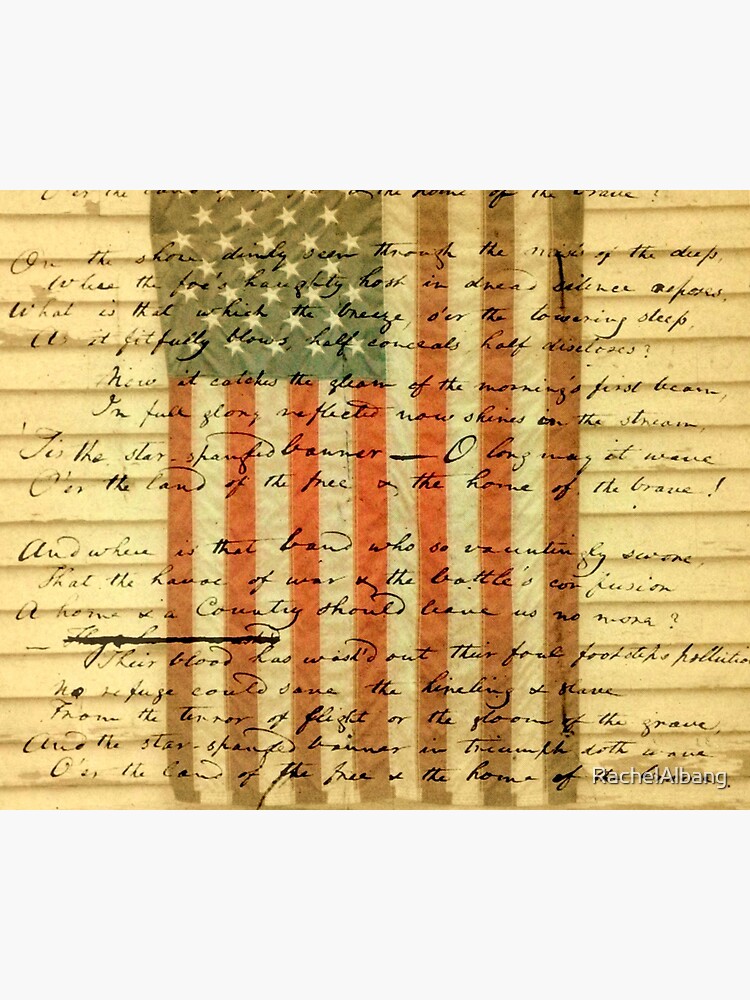 O'er the land of the free & the home of the brave?
On the shore dimly seen through the mists of the deep,
Where the foe's haughty host in dread silence reposes,
What is that which the breeze, o'er the towering steep,
As it fitfully blows, half conceals, half discloses?
Now it catches the gleam of the morning's first beam,
In full glory reflected now shines in the stream,
'Tis the star-spangled banner — O long may it wave
O'er the land of the free & the home of the brave!
And where is that band who so vauntingly swore,
That the havoc of war & the battle's confusion
A home & a Country should leave us no more?
—
Their blood has wash'd out their foul footsteps pollution
No refuge could save the hireling & slave
From the terror of flight or the gloom of the grave,
And the star-spangled banner in triumph doth wave
O'er the land of the free & the home of the brave.
RachelAlbang